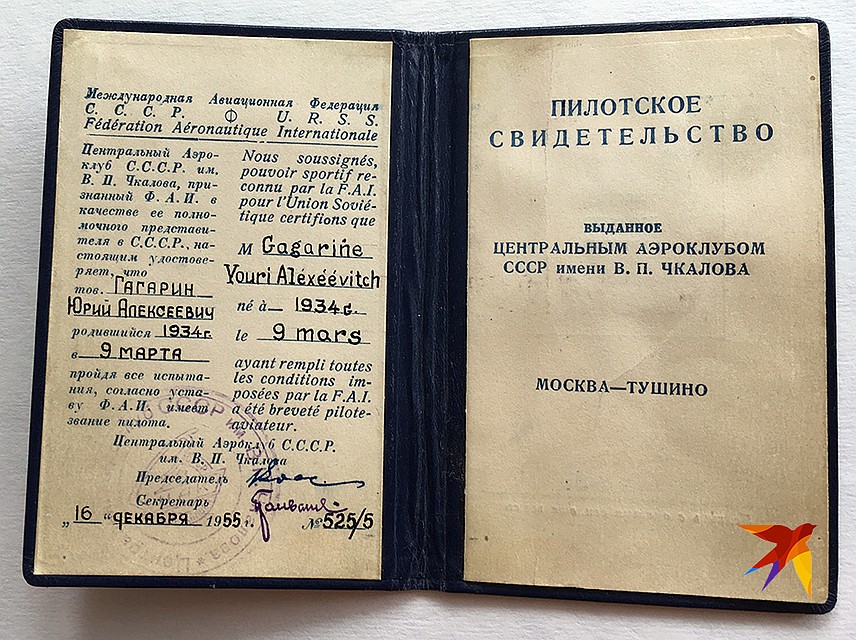 Международная Авиационная Федерация
С. С. С. Р. Ф U. R. S. S.
Fédération Aéronautique Internationale
Центральный Аэро-
клуб С.С.С.Р. им.
В. П. Чкалова, при-
знанный Ф. А. И. в
качестве ее полно-
мочного представи-
теля в С.С.С.Р., на-
стоящим удостове-
ряет, что
тов. ГАГАРИН
ЮРИЙ АЛЕКСЕЕВИЧ
родившийся 1934г.
в 9 МАРТА
пройдя все испыта-
ния, согласно уста-
ву Ф. А. И. имеет
звание пилота.
Nous soussignés,
pouvoir sportif re-
connu par la F.A.I.
pour l'Union Sovié-
tique certifions que
M Gagarine
Youri Aléxéévitch
né à 1934 г.
le 9 mars
ayant rempli toutes
les conditions im-
posées par la F.A.I.
a été breveté pilote-
aviateur.
Центральный Аэроклуб С.С.С.Р.
им. В. П. Чкалова
Председатель
Секретарь
„16“ ДЕКАБРЯ 1955 г. № 525/5
ПИЛОТСКОЕ
СВИДЕТЕЛЬСТВО
ВЫДАННОЕ
ЦЕНТРАЛЬНЫМ АЭРОКЛУБОМ
СССР имени В. П. ЧКАЛОВА
МОСКВА—ТУШИНО